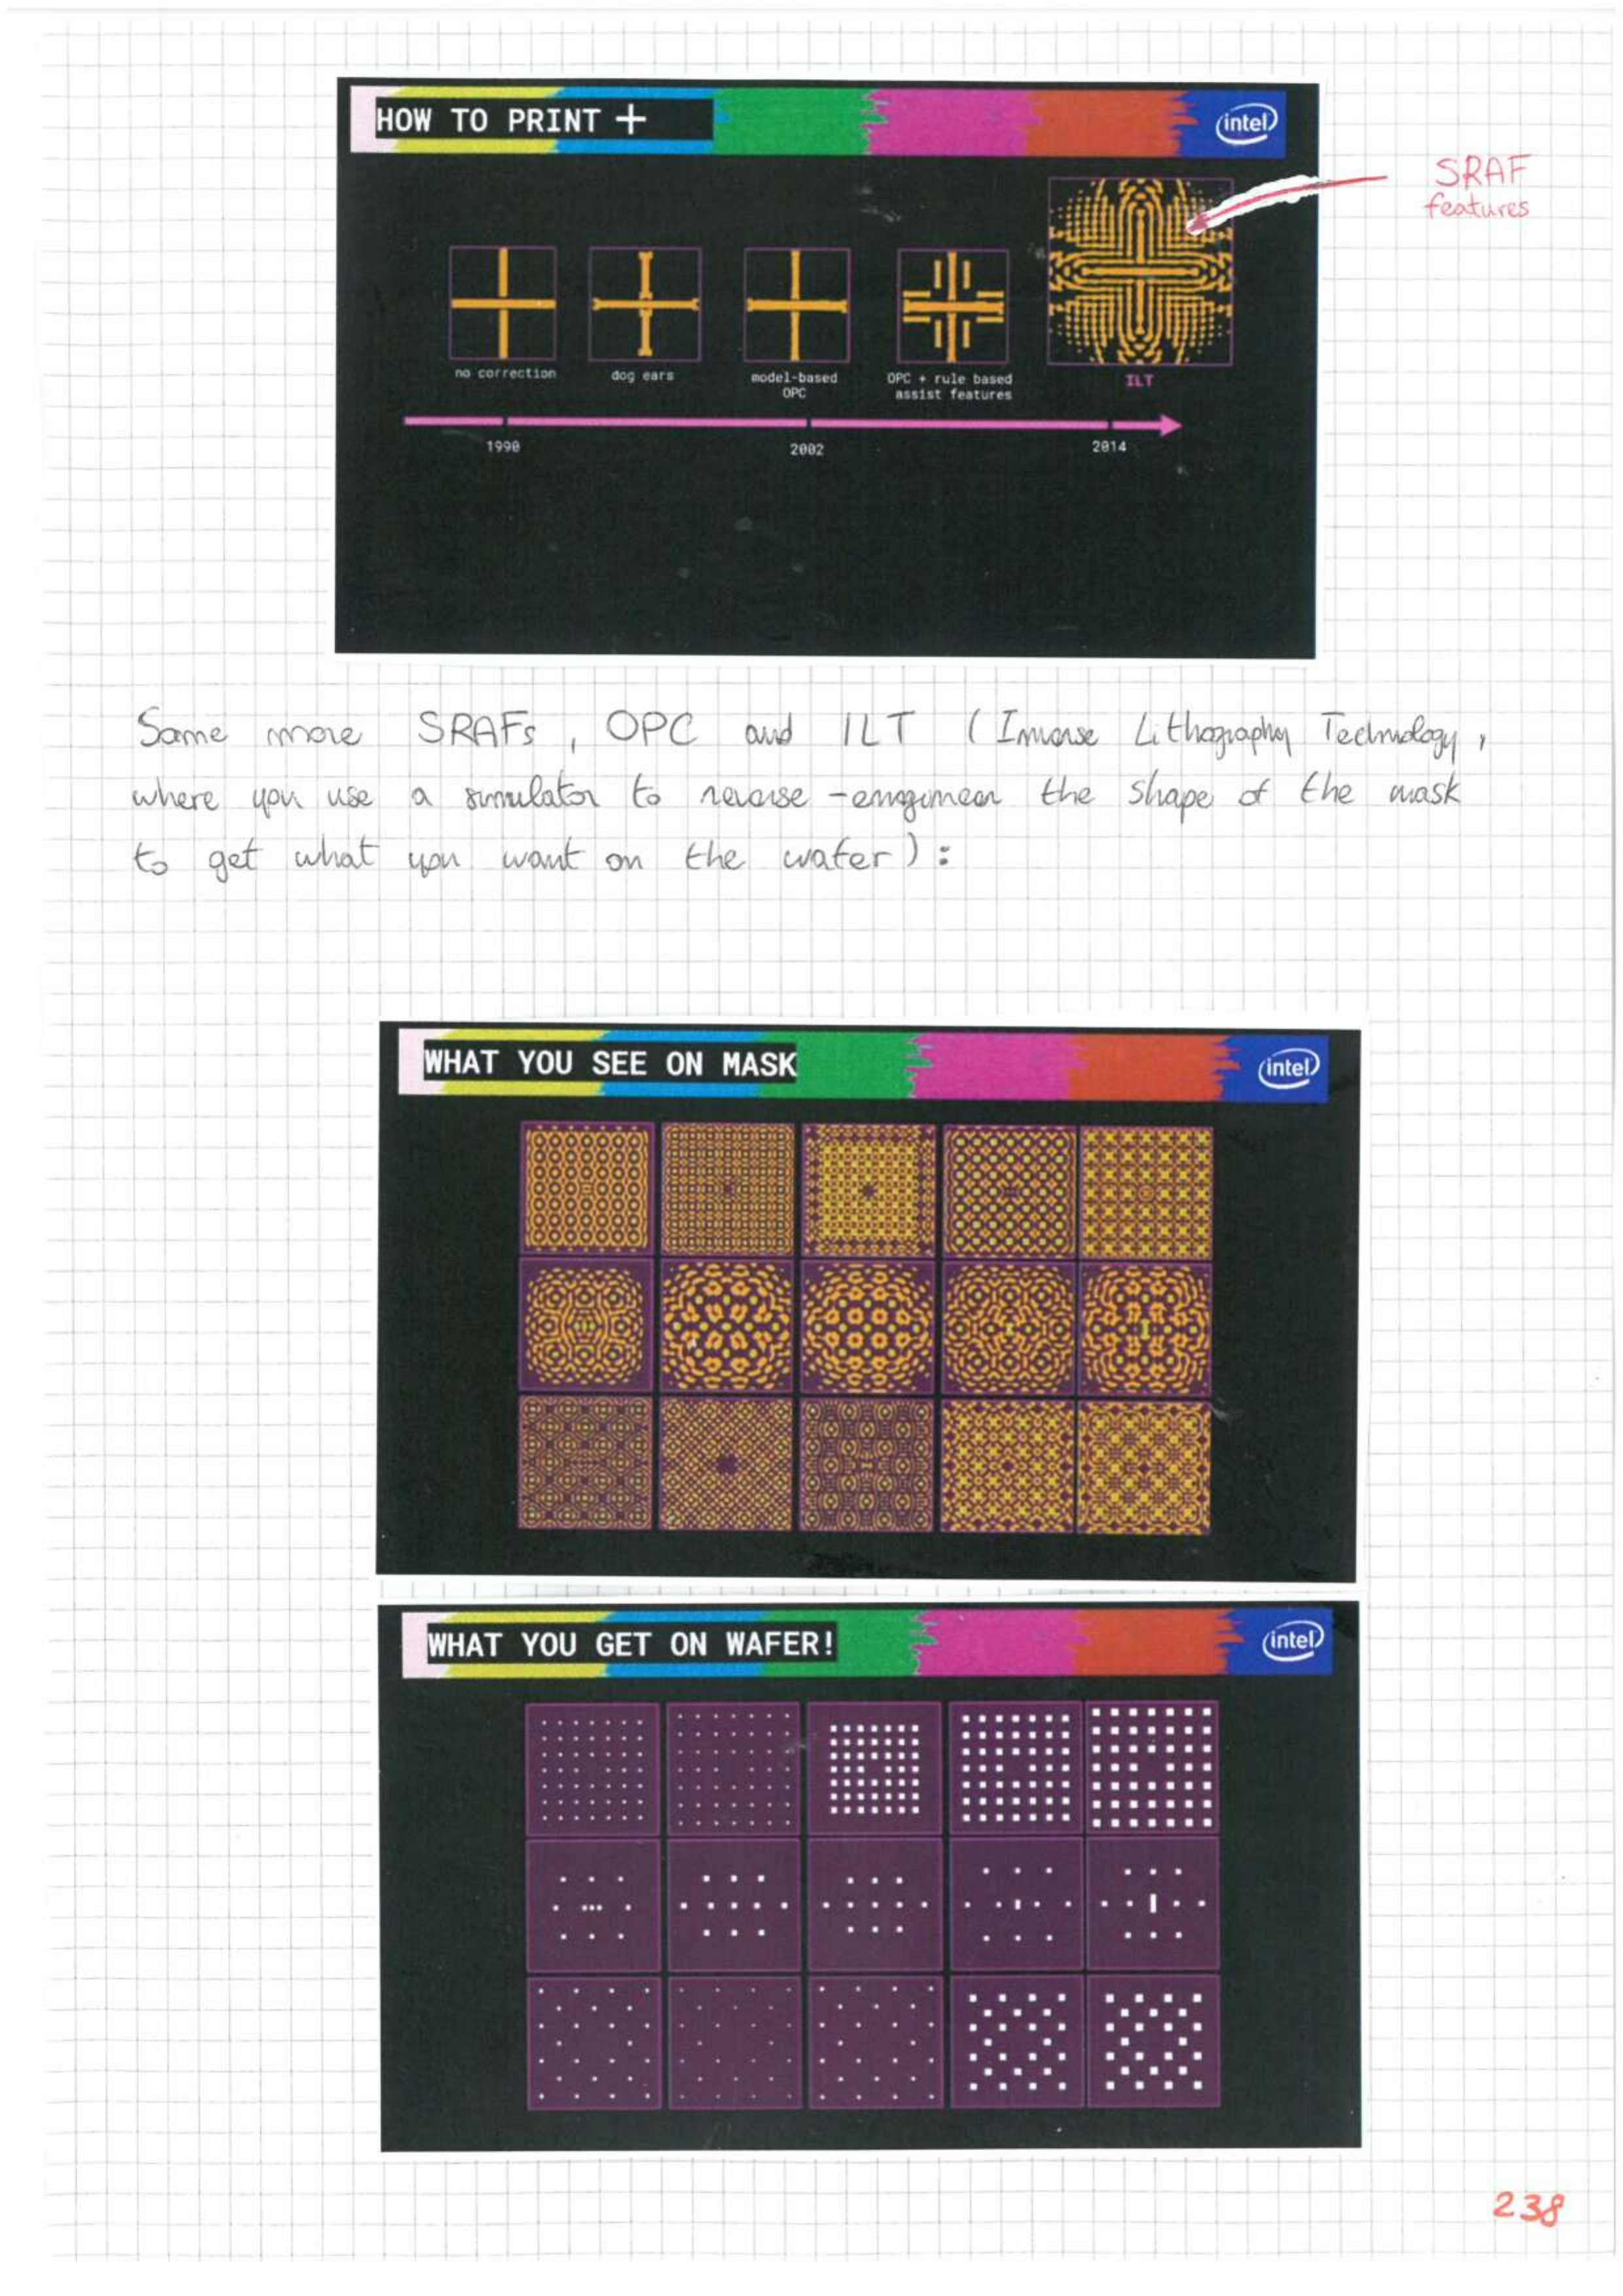 HOW TO PRINT +
intel
SRAF
features
no correction
dog ears
model-based
OPC
OPC + rule based
assist features
ILT
1990
2002
2014
Some more SRAFs, OPC and ILT (Inverse Lithography Technology,
where you use a simulator to reverse-engineer the shape of the mask
to get what you want on the wafer):
WHAT YOU SEE ON MASK
intel
WHAT YOU GET ON WAFER!
intel
238